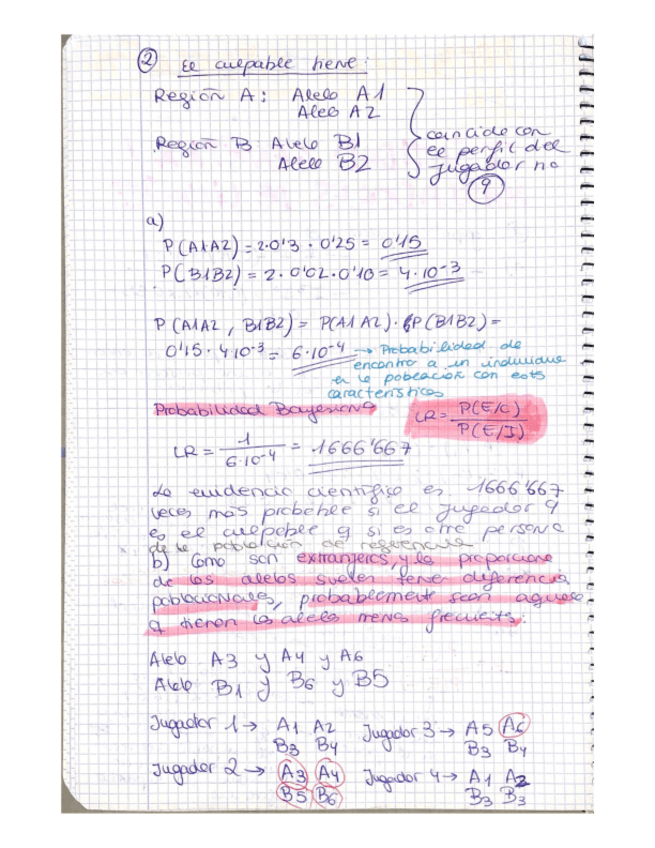 ② El culpable tiene:
Región A: Alelo A1
Alelo A2
Región B Alelo B1
Alelo B2
coincide con
el perfil del
jugador no
9
a)
P(A1A2) = 2·0'3 · 0'25 = 0'15
P(B1B2) = 2·0'02·0'10 = 4·10-3
P(A1A2, B1B2) = P(A1A2)·P(B1B2) =
0'15·4·10-3 = 6·10-4 → Probabilidad de
encontra a un individuo
en la población con estas
características
Probabilidad Bayesiana
LR = P(E/C) / P(E/I)
LR = 1 / 6·10-4 = 1666'667
La evidencia científica es 1666'667
veces más probable si el jugador 9
es el culpable q si es otra persona
de la población de referencia
b) Como son extranjeros, y la proporcione
de los alelos suelen tener diferencia
poblacionales, probablemente sean aquellos
q tienen los alelos menos frecuents.
Alelo A3 y A4 y A6
Alelo B1 y B6 y B5
Jugador 1 → A1 A2
B3 B4
Jugador 3 → A5 A6
B3 B4
Jugador 2 → A3 A4
B5 B6
Jugador 4 → A1 A2
B3 B3